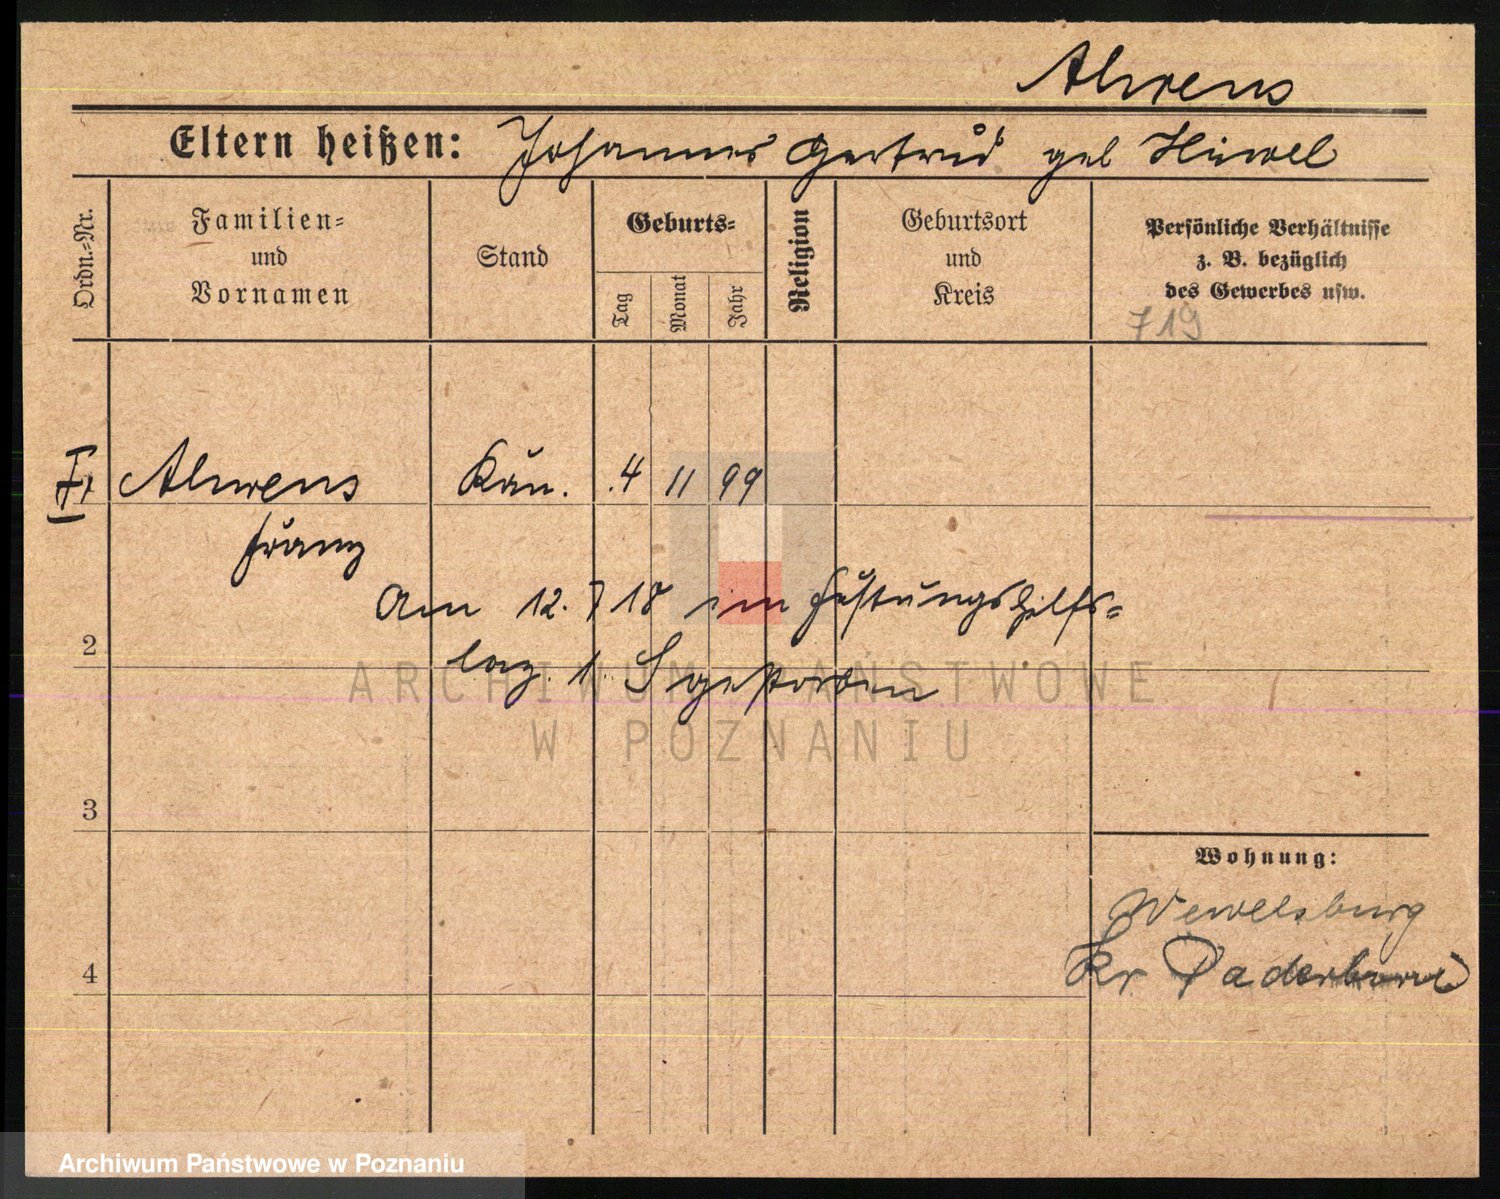 Ahrens
Eltern heißen: Johannes Gertrud geb
Ordn.=Nr.
Familien=
und
Vornamen
Stand
Geburts=
Tag
Monat
Jahr
Religion
Geburtsort
und
Kreis
Persönliche Verhältnisse
z. B. bezüglich
des Gewerbes usw.
719
Ahrens Kan. 4 11 99
Franz
Am 12. 7 18 im Festungshilfs=
laz. 1. gestorben
2
3
4
Wohnung:
Wewelsburg
Kr Paderborn
ARCHIWUM PAŃSTWOWE
W POZNANIU
Archiwum Państwowe w Poznaniu